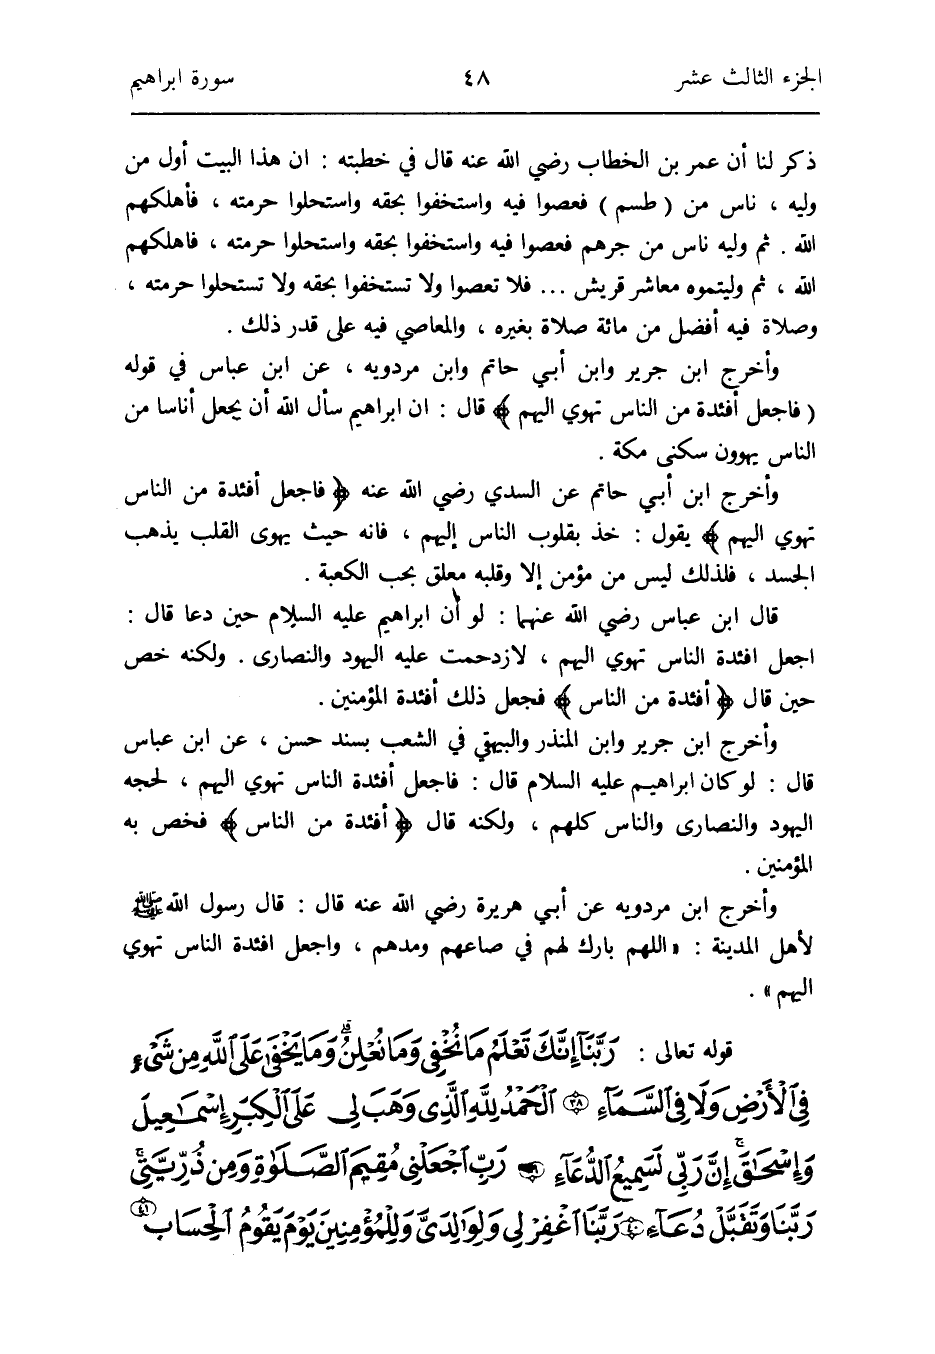 الجزء الثالث عشر ٤٨ سورة ابراهيم
ذكر لنا أن عمر بن الخطاب رضي الله عنه قال في خطبته : ان هذا البيت أول من
وليه ، ناس من ( طسم ) فعصوا فيه واستخفوا بحقه واستحلوا حرمته ، فأهلكهم
الله . ثم وليه ناس من جرهم فعصوا فيه واستخفوا بحقه واستحلوا حرمته ، فاهلكهم
الله ، ثم وليتموه معاشر قريش ... فلا تعصوا ولا تستخفوا بحقه ولا تستحلوا حرمته ،
وصلاة فيه أفضل من مائة صلاة بغيره ، والمعاصي فيه على قدر ذلك .
وأخرج ابن جرير وابن أبي حاتم وابن مردويه ، عن ابن عباس في قوله
( فاجعل أفئدة من الناس تهوي اليهم ﴾ قال : ان ابراهيم سأل الله أن يجعل أناسا من
الناس يهوون سكنى مكة .
وأخرج ابن أبي حاتم عن السدي رضي الله عنه ﴿ فاجعل أفئدة من الناس
تهوي اليهم ﴾ يقول : خذ بقلوب الناس إليهم ، فانه حيث يهوى القلب يذهب
الجسد ، فلذلك ليس من مؤمن إلا وقلبه معلق بحب الكعبة .
قال ابن عباس رضي الله عنهما : لو أن ابراهيم عليه السلام حين دعا قال :
اجعل افئدة الناس تهوي اليهم ، لازدحمت عليه اليهود والنصارى . ولكنه خص
حين قال ﴿ أفئدة من الناس ﴾ فجعل ذلك أفئدة المؤمنين .
وأخرج ابن جرير وابن المنذر والبيهقي في الشعب بسند حسن ، عن ابن عباس
قال : لو كان ابراهيم عليه السلام قال : فاجعل أفئدة الناس تهوي اليهم ، لحجه
اليهود والنصارى والناس كلهم ، ولكنه قال ﴿ أفئدة من الناس ﴾ فخص به
المؤمنين .
وأخرج ابن مردويه عن أبي هريرة رضي الله عنه قال : قال رسول الله ﷺ
لأهل المدينة : « اللهم بارك لهم في صاعهم ومدهم ، واجعل افئدة الناس تهوي
اليهم » .
قوله تعالى : رَبَّنَآ إِنَّكَ تَعْلَمُ مَا نُخْفِي وَمَا نُعْلِنُ ۗ وَمَا يَخْفَىٰ عَلَى ٱللَّهِ مِن شَىْءٍ
فِي ٱلْأَرْضِ وَلَا فِي ٱلسَّمَآءِ ٣٨ ٱلْحَمْدُ لِلَّهِ ٱلَّذِي وَهَبَ لِي عَلَى ٱلْكِبَرِ إِسْمَٰعِيلَ
وَإِسْحَٰقَ ۚ إِنَّ رَبِّي لَسَمِيعُ ٱلدُّعَآءِ رَبِّ ٱجْعَلْنِي مُقِيمَ ٱلصَّلَوٰةِ وَمِن ذُرِّيَّتِي ۚ
رَبَّنَا وَتَقَبَّلْ دُعَآءِ ٤٠ رَبَّنَا ٱغْفِرْ لِي وَلِوَٰلِدَيَّ وَلِلْمُؤْمِنِينَ يَوْمَ يَقُومُ ٱلْحِسَابُ ٤١